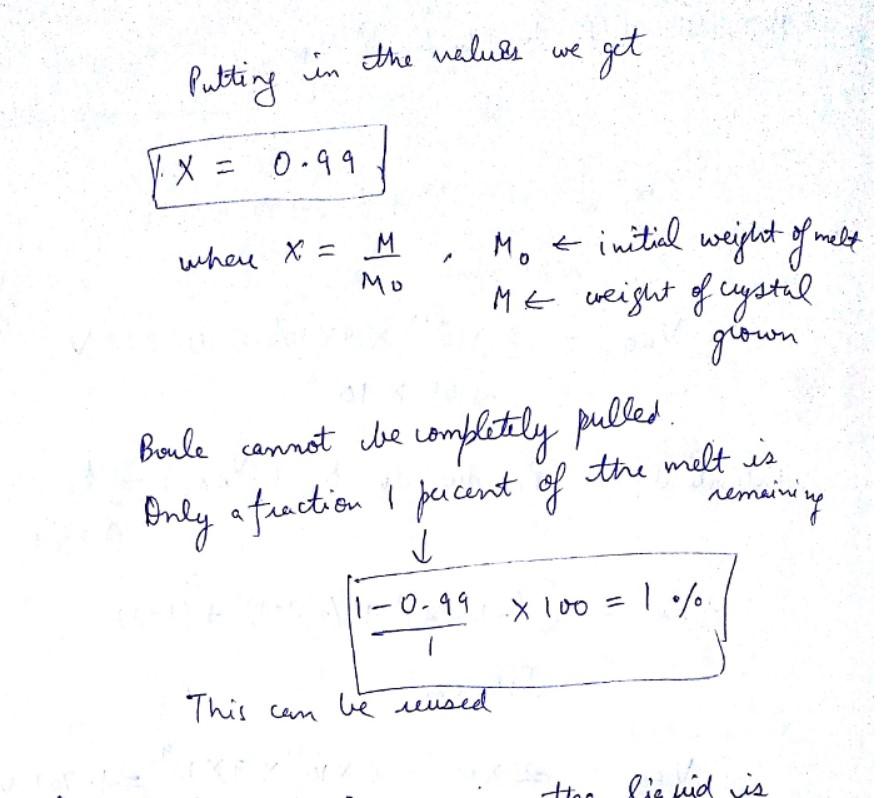 Putting in the values we get
X = 0.99
where X = M/M₀ , M₀ ← initial weight of melt
M ← weight of crystal
grown
Boule cannot be completely pulled.
Only a fraction 1 percent of the melt is
remaining
↓
(1-0.99)/1 × 100 = 1 %
This can be reused
the liquid is